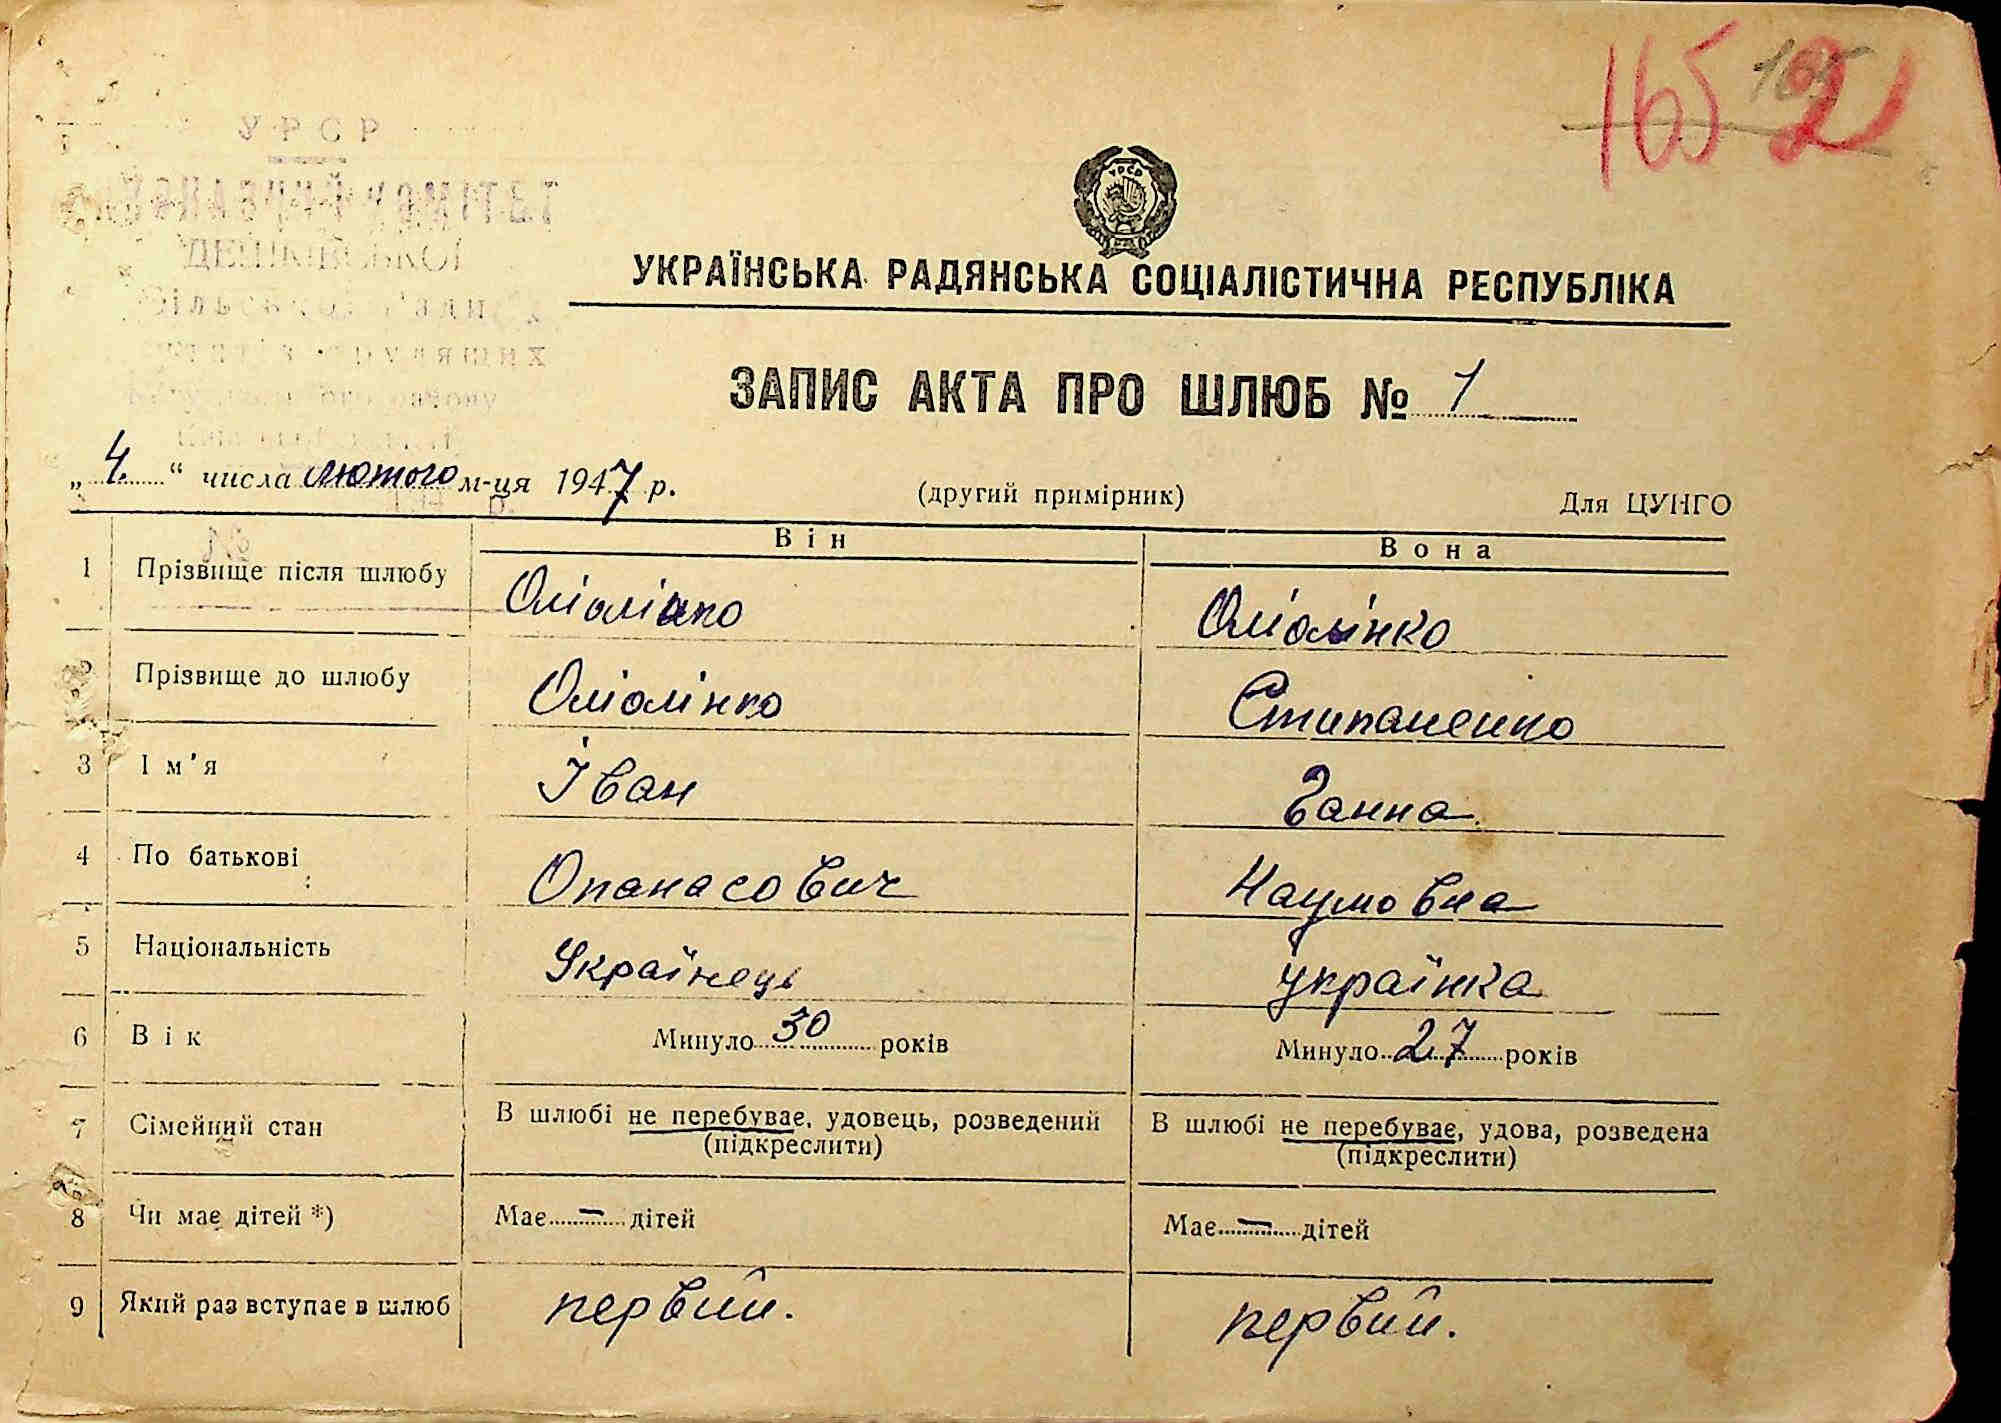 165 2
165
УРСР
УКРАЇНСЬКА РАДЯНСЬКА СОЦІАЛІСТИЧНА РЕСПУБЛІКА
ЗАПИС АКТА ПРО ШЛЮБ № 1
„4.“ числа лютого м-ця 1947 р. (другий примірник) Для ЦУНГО
Він Вона
1 Прізвище після шлюбу Оліолінко Оліолінко
2 Прізвище до шлюбу Оліолінко Стипаненко
3 Ім'я Іван Ганна
4 По батькові Опанасович Наумовна
5 Національність Українець українка
6 Вік Минуло 30 років Минуло 27 років
7 Сімейний стан В шлюбі не перебуває, удовець, розведений В шлюбі не перебуває, удова, розведена
(підкреслити) (підкреслити)
8 Чи має дітей *) Має — дітей Має — дітей
9 Який раз вступає в шлюб первий. первий.